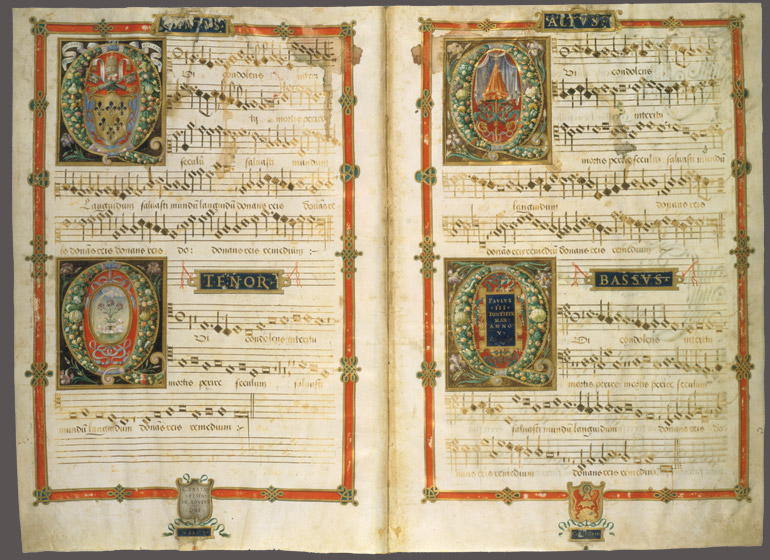 Ui condolens interi
tu mortis perire
seculū saluasti mundum
Languidum saluasti mundū languidū donans reis donās re
is donās reis donās reis do: donans reis remedium :-
TENOR
Ui condolens interitu
mortis perire seculum saluasti
mundū languidum donās reis remedium :-
ALTVS
Ui condolens
interitu
mortis perire seculū saluasti mundū
languidum donans reis
donās reis remediū donans reis remedium
BASSVS
PAVLVS
III
PONTIFEX
MAX
ANNO
V
Ui condolens interitu
mortis perire mortis perire seculum
saluasti mundū languidum donans reis do
nans reis remedium donans reis remedium